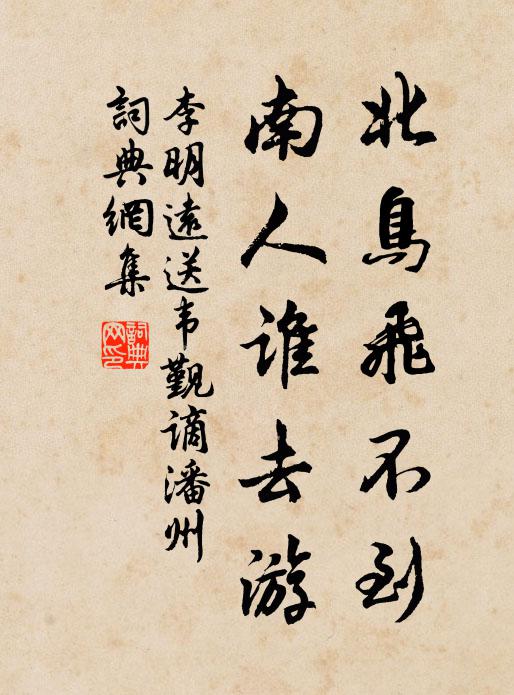 北鳥飛不到
南人誰去游
李明遠送韦觐谪潘州
詞典網集
詞典
网印